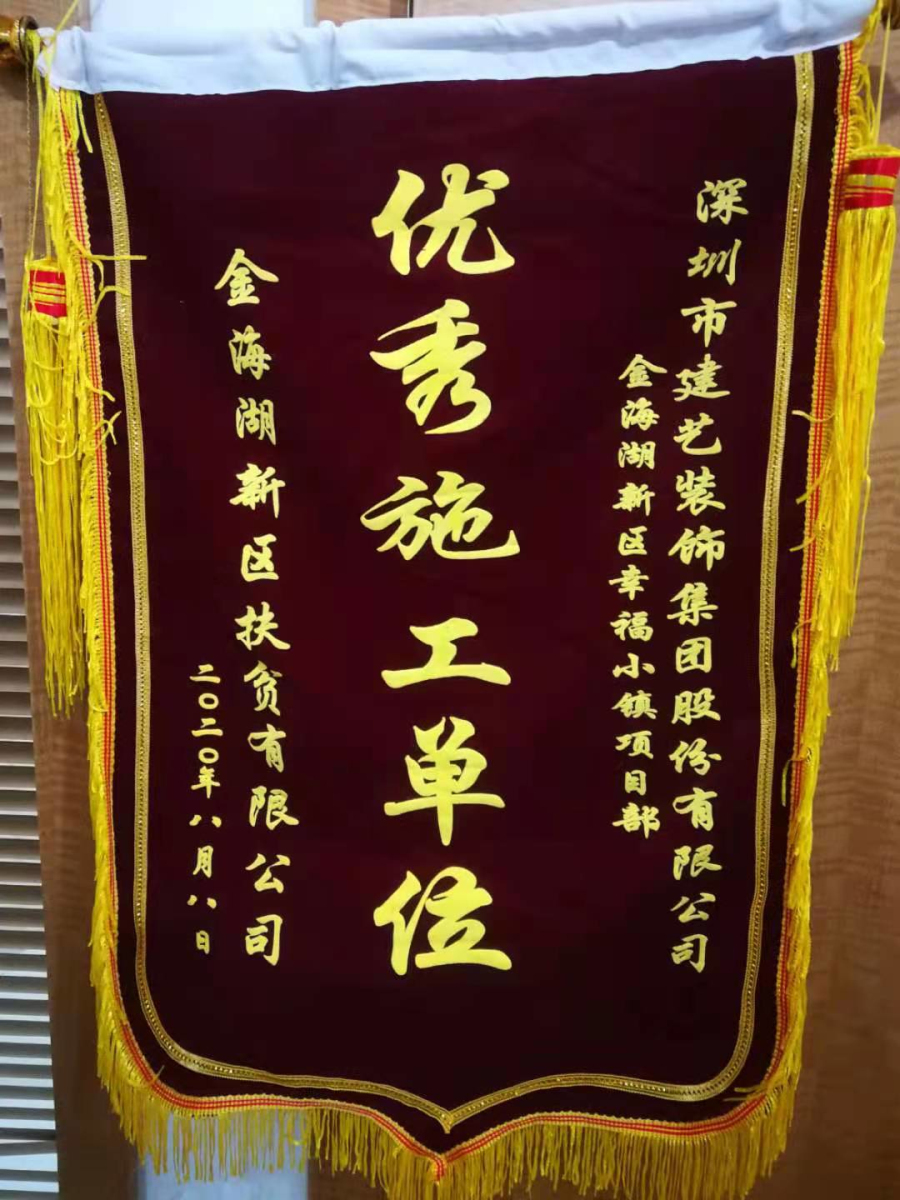 深圳市建艺装饰集团股份有限公司
金海湖新区幸福小镇项目部
优秀施工单位
金海湖新区扶贫有限公司
二〇二〇年八月八日